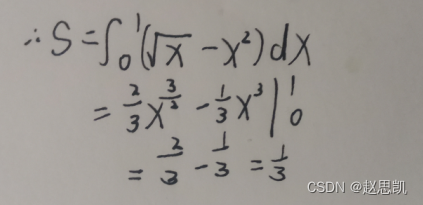 ∴ S = ∫₀¹ (√x - x²) dx
= 2/3 x^(3/2) - 1/3 x³ |₀¹
= 2/3 - 1/3 = 1/3
CSDN @赵思凯